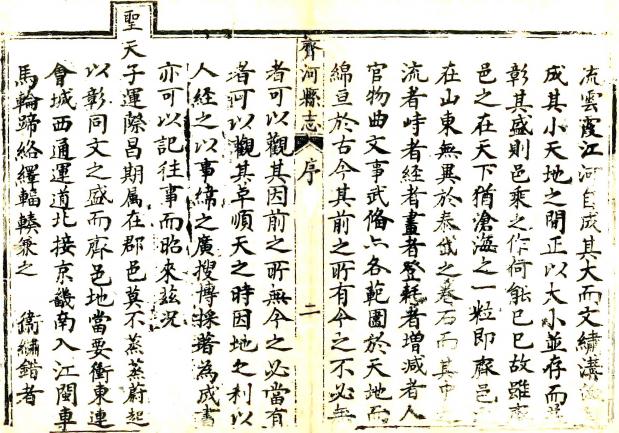 流雲霞江河自成其大而文繡溱
成其小天地之間正以大小並存而
彰其盛則邑乘之作何能已已故雖齊
邑之在天下猶滄海之一粒即齊邑
在山東無異於泰岱之卷石而其中之
流者峙者經者畫者登耗者增減者人
官物曲文事武俻亦各範圍於天地而
綿亘於古今其前之所有今之不必無
齊河縣志
序
二
者可以觀其因前之所無今之必當有
者可以觀其革順天之時因地之利以
人經之以事緯之廣搜博採著為成書
亦可以記往事而昭來玆况
聖天子運際昌期属在郡邑莫不蒸蒸蔚起
以彰同文之盛而齊邑地當要衝東連
會城西通運道北接京畿南入江閩車
馬輪蹄絡繹輻輳兼之 衛繡錯者